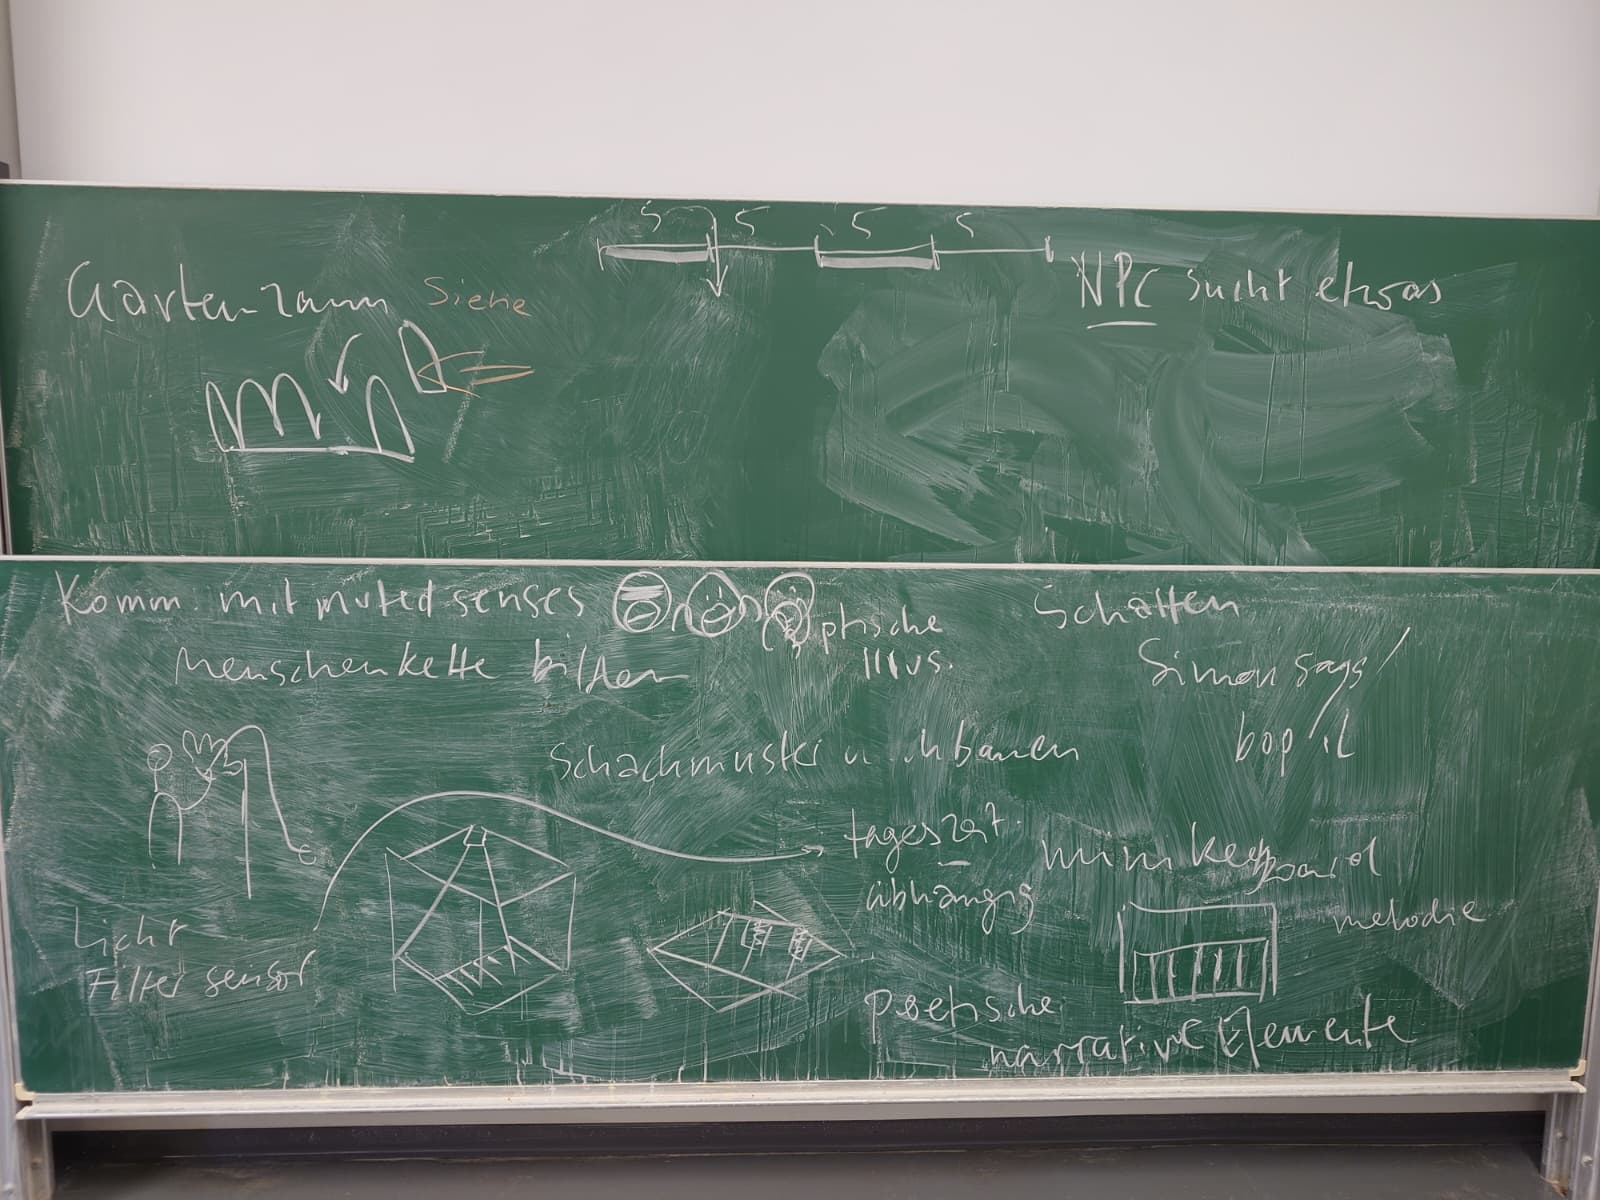 5 5 5 5
Gartenzaun Siehe
NPC sucht etwas
Komm. mit muted senses
optische
Illus.
Menschenkette bilden
Schatten
Simon says /
bop it
Schachmuster
tageszeit.
abhängig
mini keyboard
melodie
Licht
Filter sensor
poetische
narrative Elemente